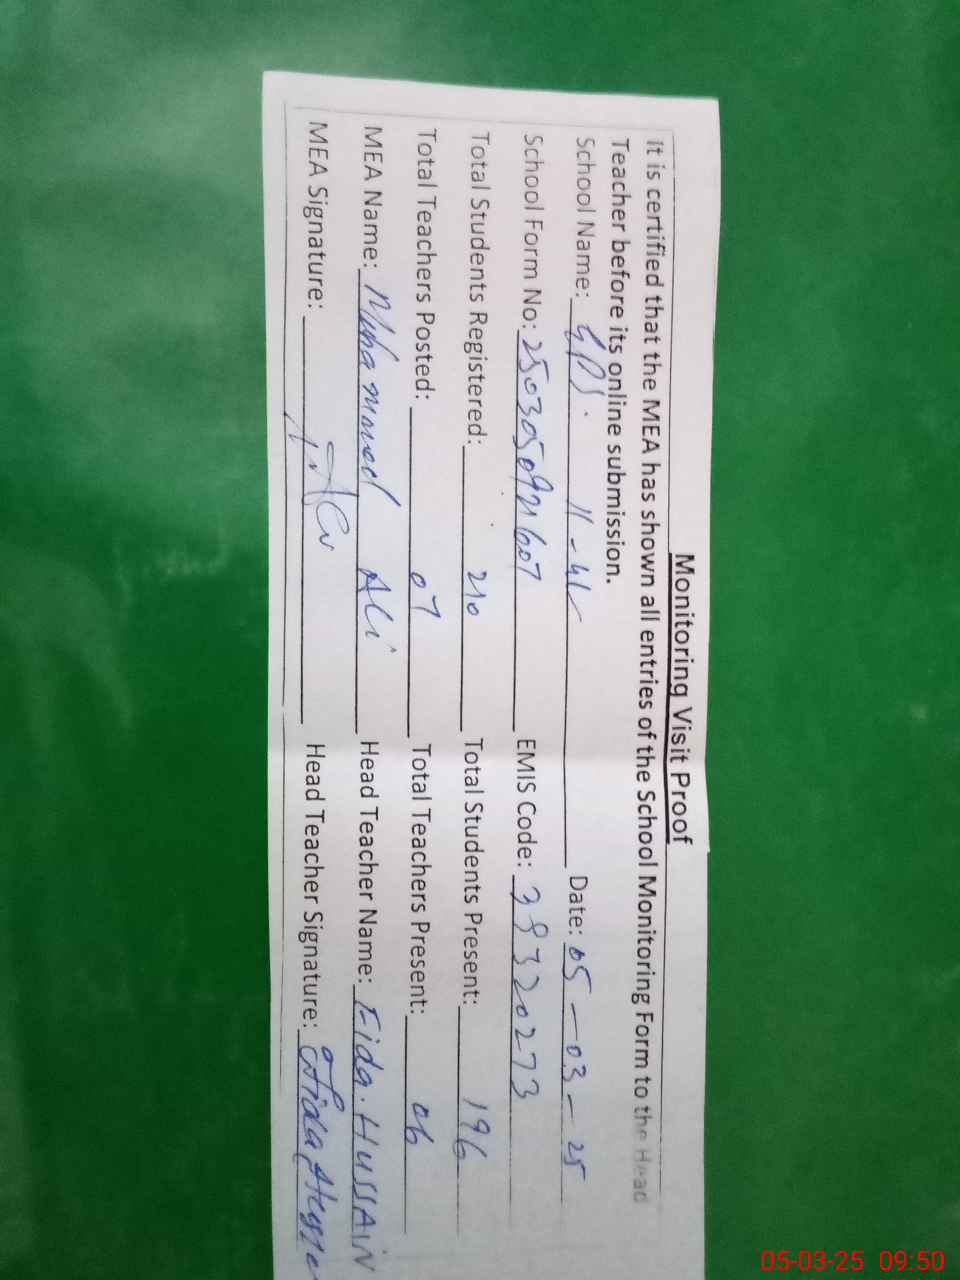 Monitoring Visit Proof
It is certified that the MEA has shown all entries of the School Monitoring Form to the Head
Teacher before its online submission.
School Name: GPS. 11-4L Date: 05-03-25
School Form No: EMIS Code: 39320273
Total Students Registered: 210 Total Students Present: 196
Total Teachers Posted: 07 Total Teachers Present: 06
MEA Name: Muhammad Ali Head Teacher Name: Fida. HUSSAIN
MEA Signature: Head Teacher Signature:
05-03-25 09:50